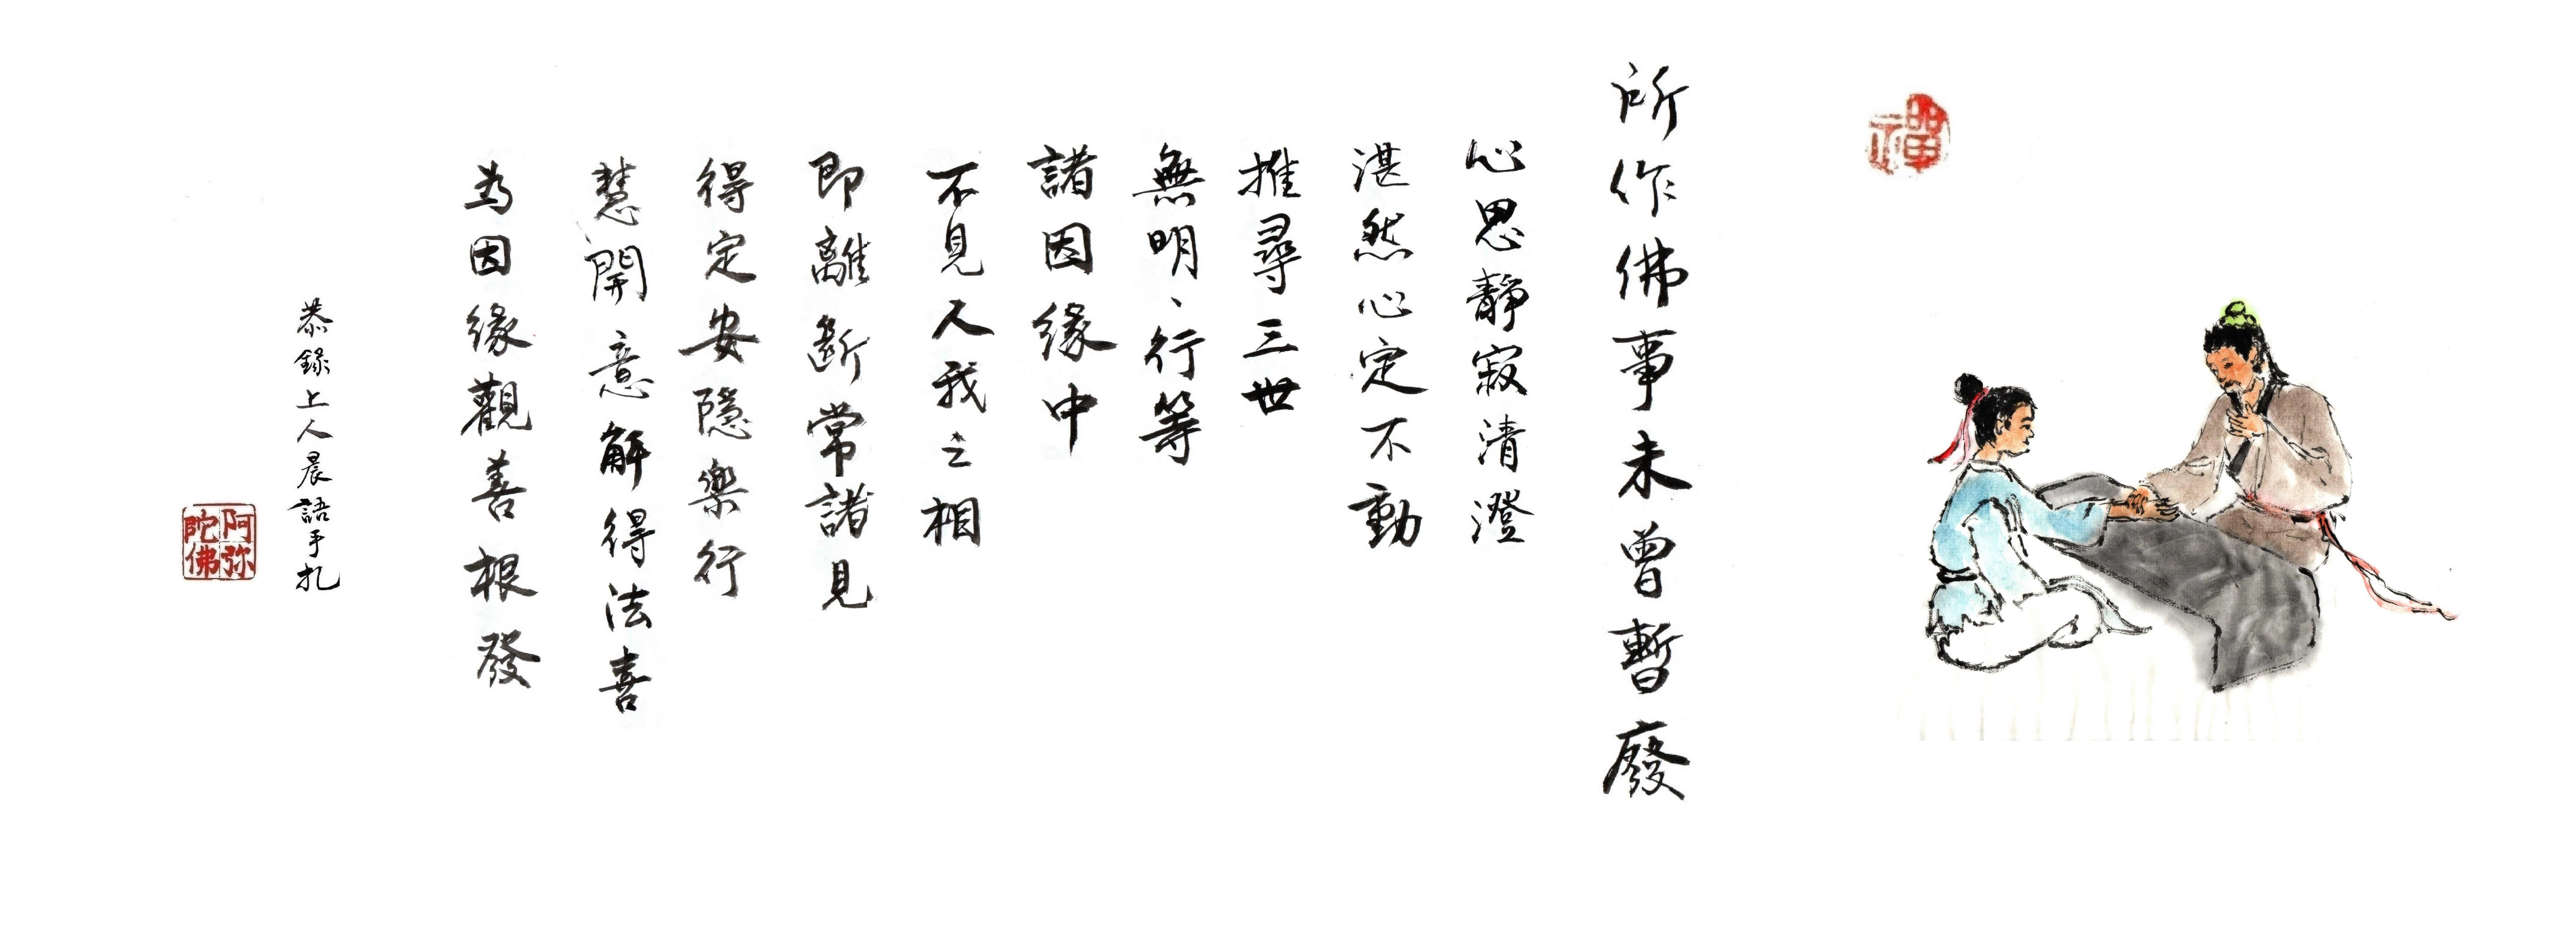 禪
所作佛事未曾暫廢
心思靜寂清澄
湛然心定不動
推尋三世
無明、行等
諸因緣中
不見人我之相
即離斷常諸見
得定安隱樂行
慧開意解得法喜
為因緣觀善根發
恭錄上人晨語手札
阿弥陀佛